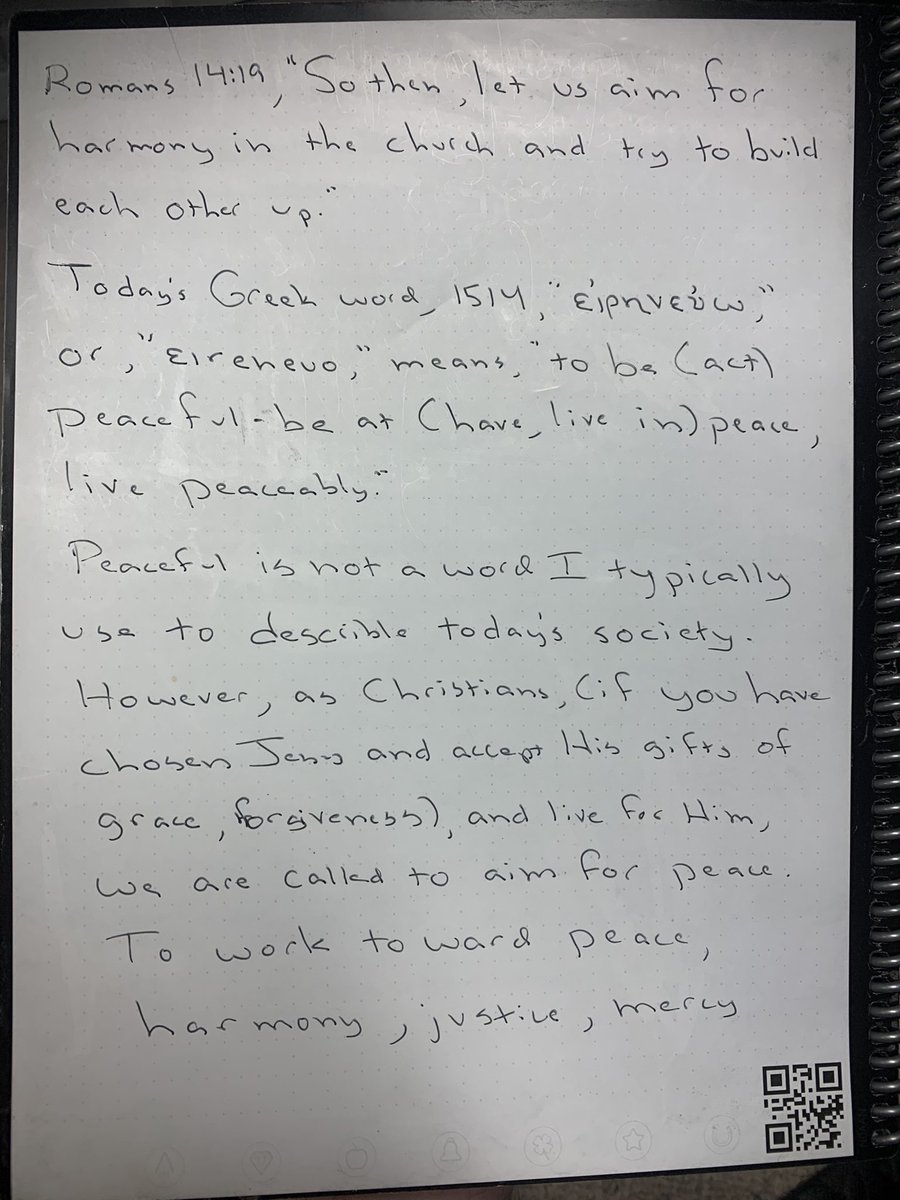 Romans 14:19, "So then, let us aim for
harmony in the church and try to build
each other up."
Today's Greek word, 1514, "εἰρηνεύω,"
or, "εırenevo," means, "to be (act)
peaceful-be at (have, live in) peace,
live peaceably."
Peaceful is not a word I typically
use to describle today's society.
However, as Christians, (if you have
chosen Jesus and accept His gifts of
grace, forgiveness), and live for Him,
we are called to aim for peace.
To work toward peace,
harmony, justice, mercy